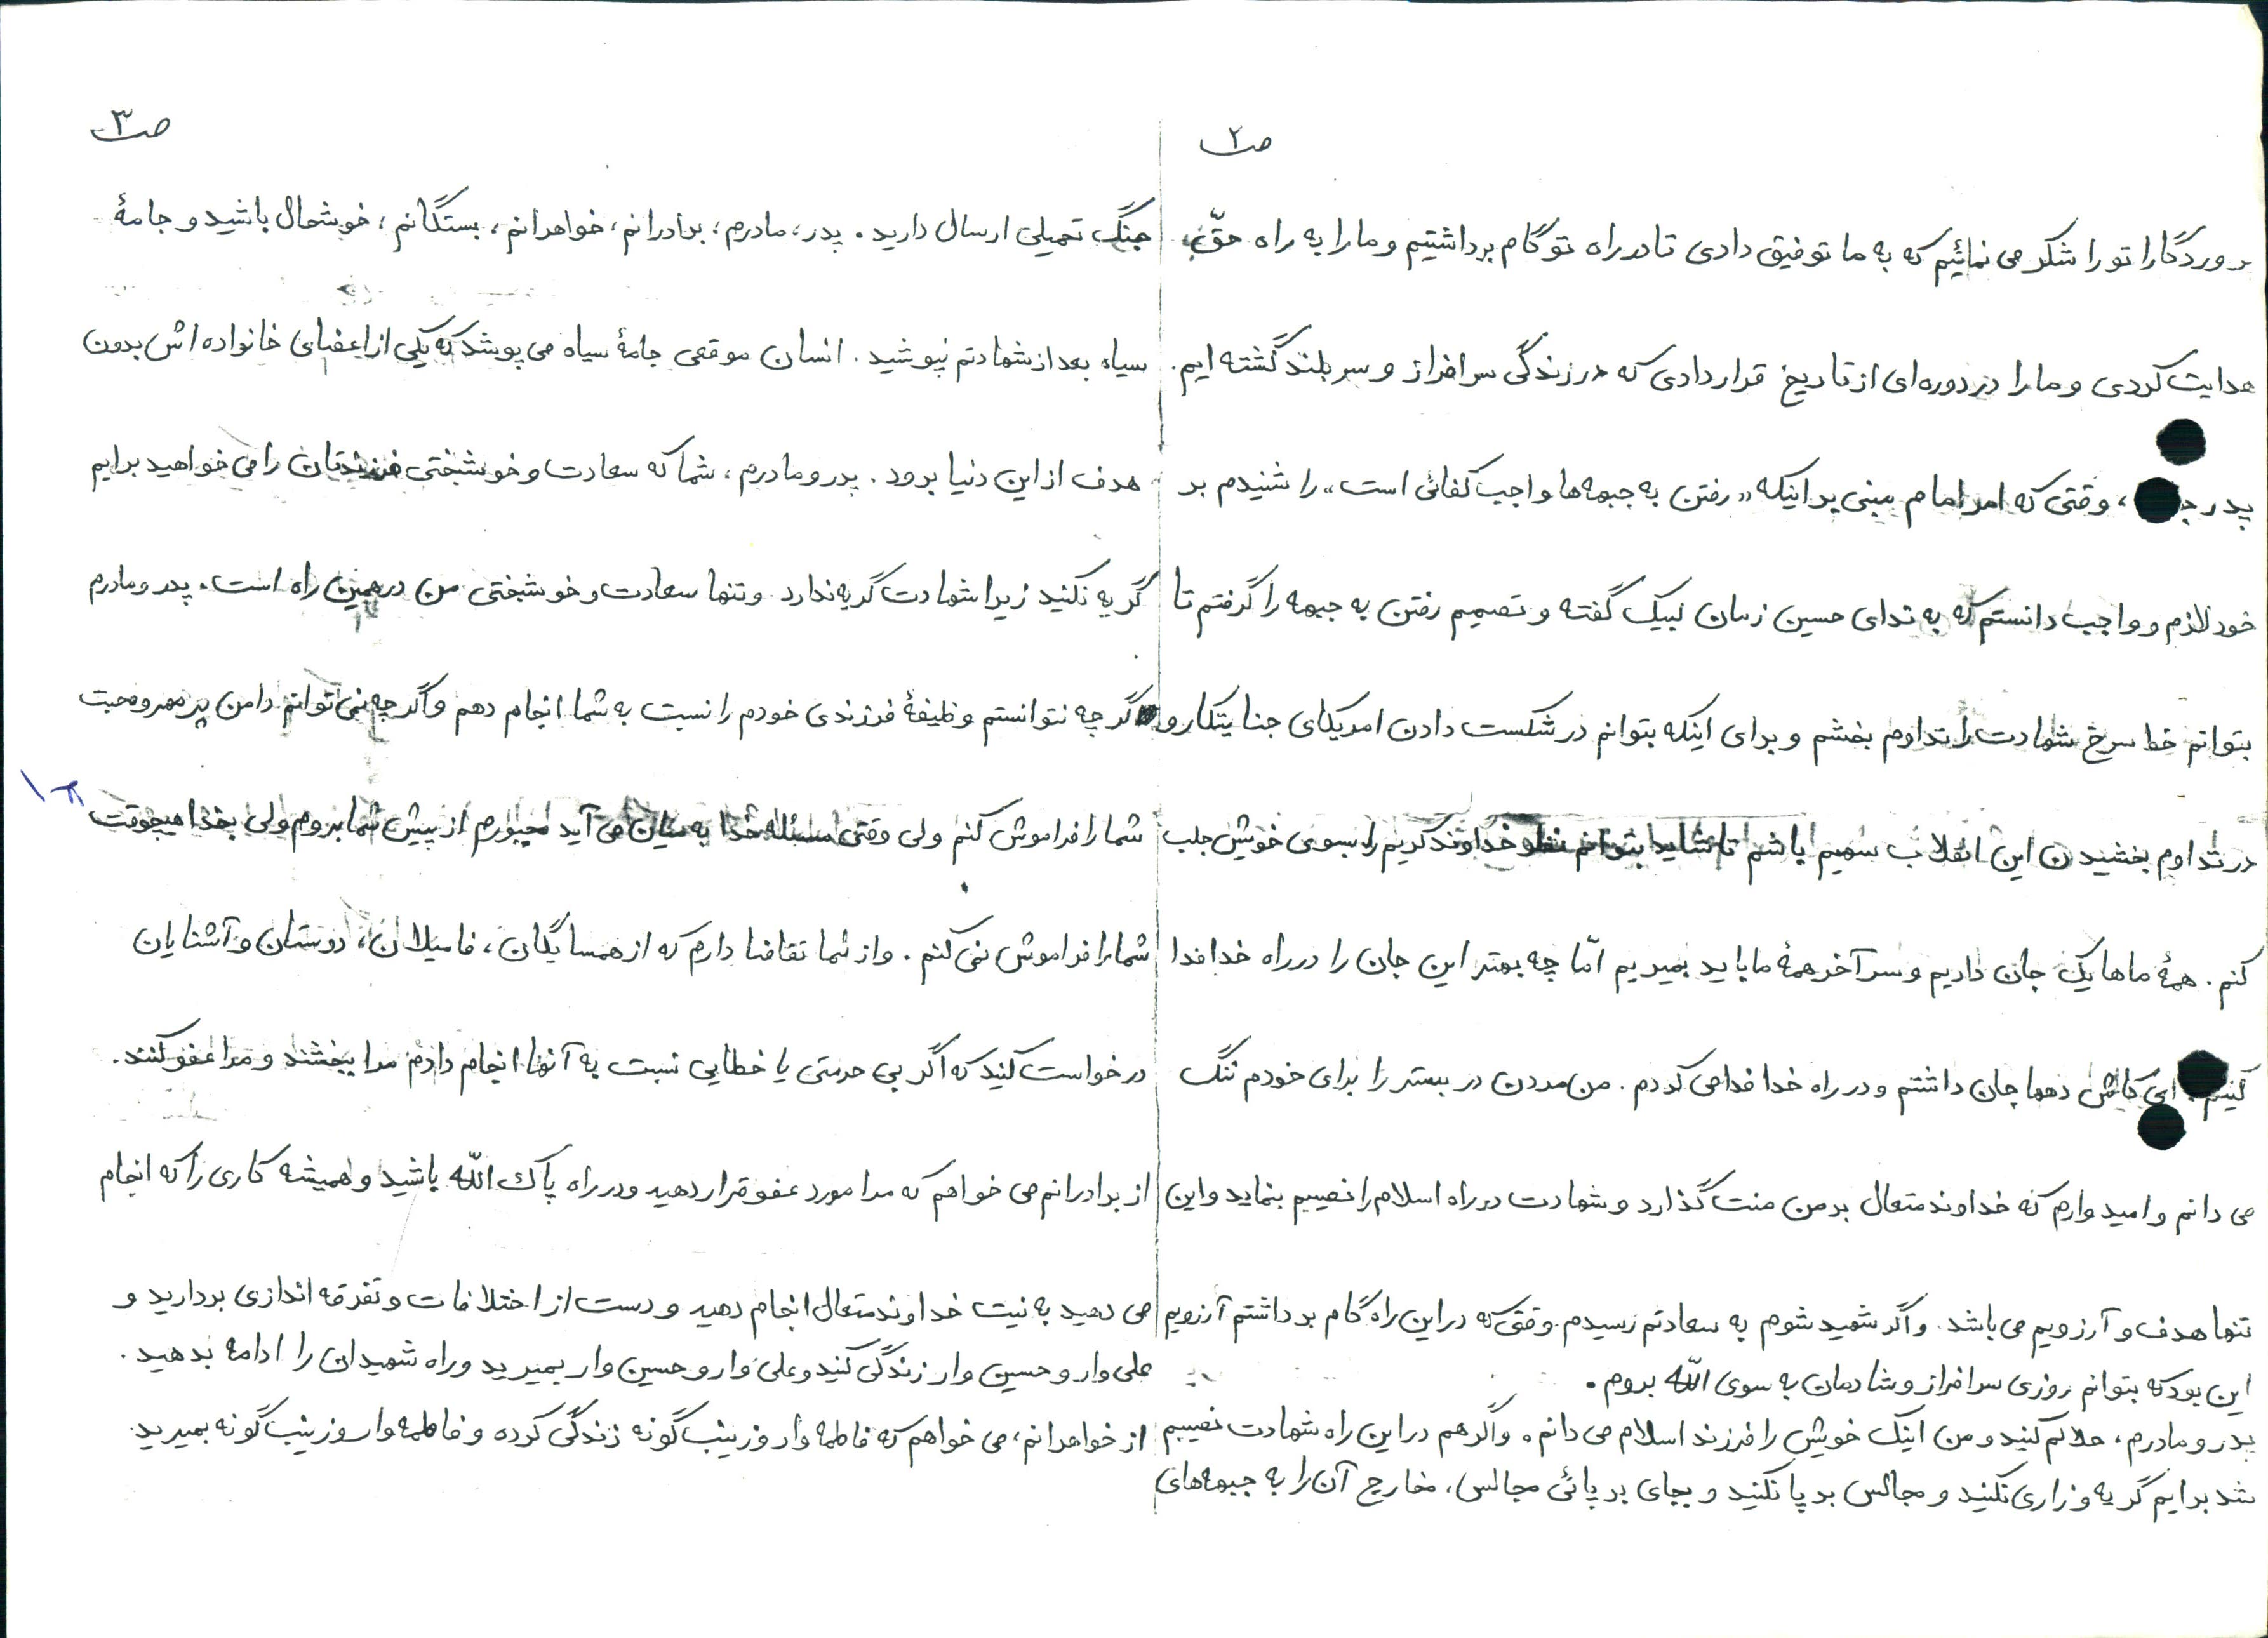 ص۲
پروردگارا تو را شکر می نمائیم که به ما توفیق دادی تا در راه تو گام برداشتیم و ما را به راه حقّ
هدایت کردی و ما را در دوره ای از تاریخ قرار دادی که در زندگی سرافراز و سربلند گشته ایم.
پدر ، وقتی که امر امام مبنی بر اینکه «رفتن به جبهه ها واجب کفائی است» را شنیدم بر
خود لازم و واجب دانستم که به ندای حسین زمان لبیک گفته و تصمیم رفتن به جبهه را گرفتم تا
بتوانم خط سرخ شهادت را تداوم بخشم و برای اینکه بتوانم در شکست دادن امریکای جنایتکار و
در تداوم بخشیدن این انقلاب سهیم باشم تا شاید بتوانم نظر خداوند کریم را بسوی خویش جلب
کنم. همهٔ ماها یک جان داریم و سرآخر همهٔ ما باید بمیریم امّا چه بهتر این جان را در راه خدا فدا
کنیم. ای کاش دهها جان داشتم و در راه خدا فدا می کردم. من مردن در بستر را برای خودم ننگ
می دانم و امیدوارم که خداوند متعال بر من منت گذارد و شهادت در راه اسلام را نصیبم بنماید و این
تنها هدف و آرزویم می باشد. و اگر شهید شوم به سعادتم رسیدم. وقتی که در این راه گام برداشتم آرزویم
این بود که بتوانم روزی سرافراز و شادمان به سوی اللّه بروم.
پدر و مادرم، حلالم کنید و من اینک خویش را فرزند اسلام می دانم. و اگر هم در این راه شهادت نصیبم
شد برایم گریه و زاری نکنید و مجالس بر پا نکنید و بجای بر پائی مجالس، مخارج آن را به جبهه های
ص۳
جنگ تحمیلی ارسال دارید. پدر، مادرم، برادرانم، خواهرانم، بستگانم، خوشحال باشید و جامهٔ
سیاه بعد از شهادتم نپوشید. انسان موقعی جامهٔ سیاه می پوشد که یکی از اعضای خانواده اش بدون
هدف از این دنیا برود. پدر و مادرم، شما که سعادت و خوشبختی فرزندتان را می خواهید برایم
گریه نکنید زیرا شهادت گریه ندارد و تنها سعادت و خوشبختی من در همین راه است. پدر و مادرم
گرچه نتوانستم وظیفهٔ فرزندی خودم را نسبت به شما انجام دهم و اگرچه نمی توانم دامن پر مهر و محبت
شما را فراموش کنم ولی وقتی مسئله خدا به میان می آید مجبورم از پیش شما بروم ولی بخدا هیچوقت
شما را فراموش نمی کنم. و از شما تقاضا دارم که از همسایگان، فامیلان، دوستان و آشنایان
درخواست کنید که اگر بی حرمتی یا خطایی نسبت به آنها انجام دادم مرا ببخشند و مرا عفو کنند.
از برادرانم می خواهم که مرا مورد عفو قرار دهید و در راه پاک اللّه باشید و همیشه کاری را که انجام
می دهید به نیت خداوند متعال انجام دهید و دست از اختلافات و تفرقه اندازی بردارید و
علی وار و حسین وار زندگی کنید و علی وار و حسین وار بمیرید و راه شهیدان را ادامه بدهید.
از خواهرانم، می خواهم که فاطمه وار و زینب گونه زندگی کرده و فاطمه وار و زینب گونه بمیرید.